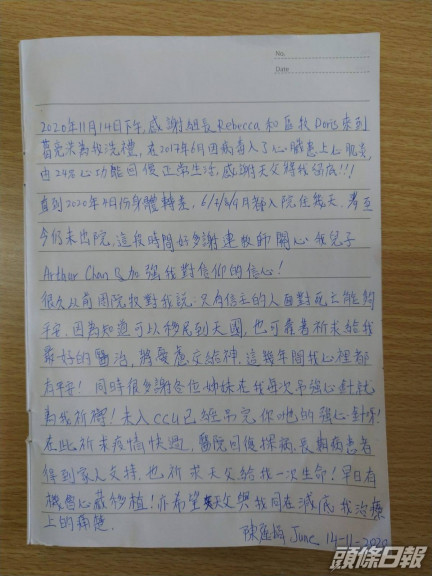 No.
Date
2020年11月14日下午,感謝組長Rebecca和區牧Doris來到
葛亮洪為我洗禮,在2017年6月因病毒入了心臟患上心肌炎,
由24% 心功能回復正常生活,感謝天父得我留底!!!
直到2020年4月份身體轉差,6/7/8/9月都入院住幾天,甚至
今仍未出院,這段時間好多謝 牧師關心我兒子
Arthur Chan 及加强我對信仰的信心!
很久以前團院牧對我說:只有信主的人面對死亡能夠
平安,因為知道可以移民到天國,也可靠著祈求給我
最好的醫治,將憂慮交給神,這幾年間我心裡都
有平安!同時很多謝各位姊妹在我每次吊强心針就
為我祈禱!未入CCU已經吊完你哋的强心針呀!
在此祈求疫情快啲,醫院回復探病,長期病患者
得到家人支持,也祈求天父給我一次生命!早日有
機會心藏移植!亦希望天父與我同在減底我治療
上的痛楚.
陳 June 14-11-2020
頭條日報